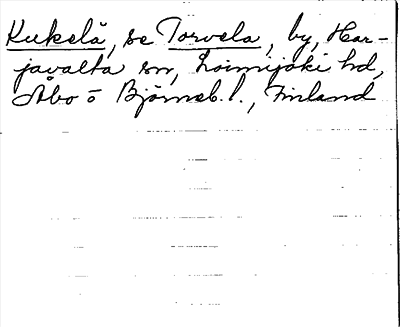 Kukelä, se Torvela, by, Har-
javalta sn, Loimijoki hd,
Åbo o Björneb. l., Finland